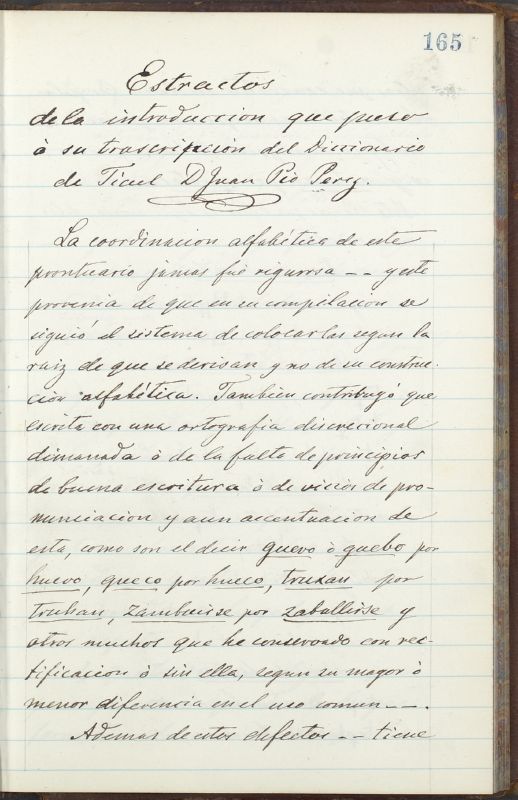 165
Estractos
de la introduccion que puso
à su trascripcion del Diccionario
de Ticul D Juan Pio Perez.
La coordinacion alfabética de este
prontuario jamas fué rigurosa -- y este
provenia de que en su compilacion se
siguió el sistema de colocarlas segun la
raiz de que se derivan y no de su construc-
cion alfabética. Tambien contribuyó que
escrita con una ortografia discrecional
dimanada ò de la falta de principios
de buena escritura ò de vicios de pro-
nunciacion y aun accentuacion de
esta, como son el decir guevo ò guebo por
huevo, queco por hueco, truxan por
truhan, zambuirse por zabullirse y
otros muchos que he conservado con rec-
tificacion ò sin ella, segun su mayor ò
menor diferencia en el uso comun --.
Ademas de estos defectos -- tiene